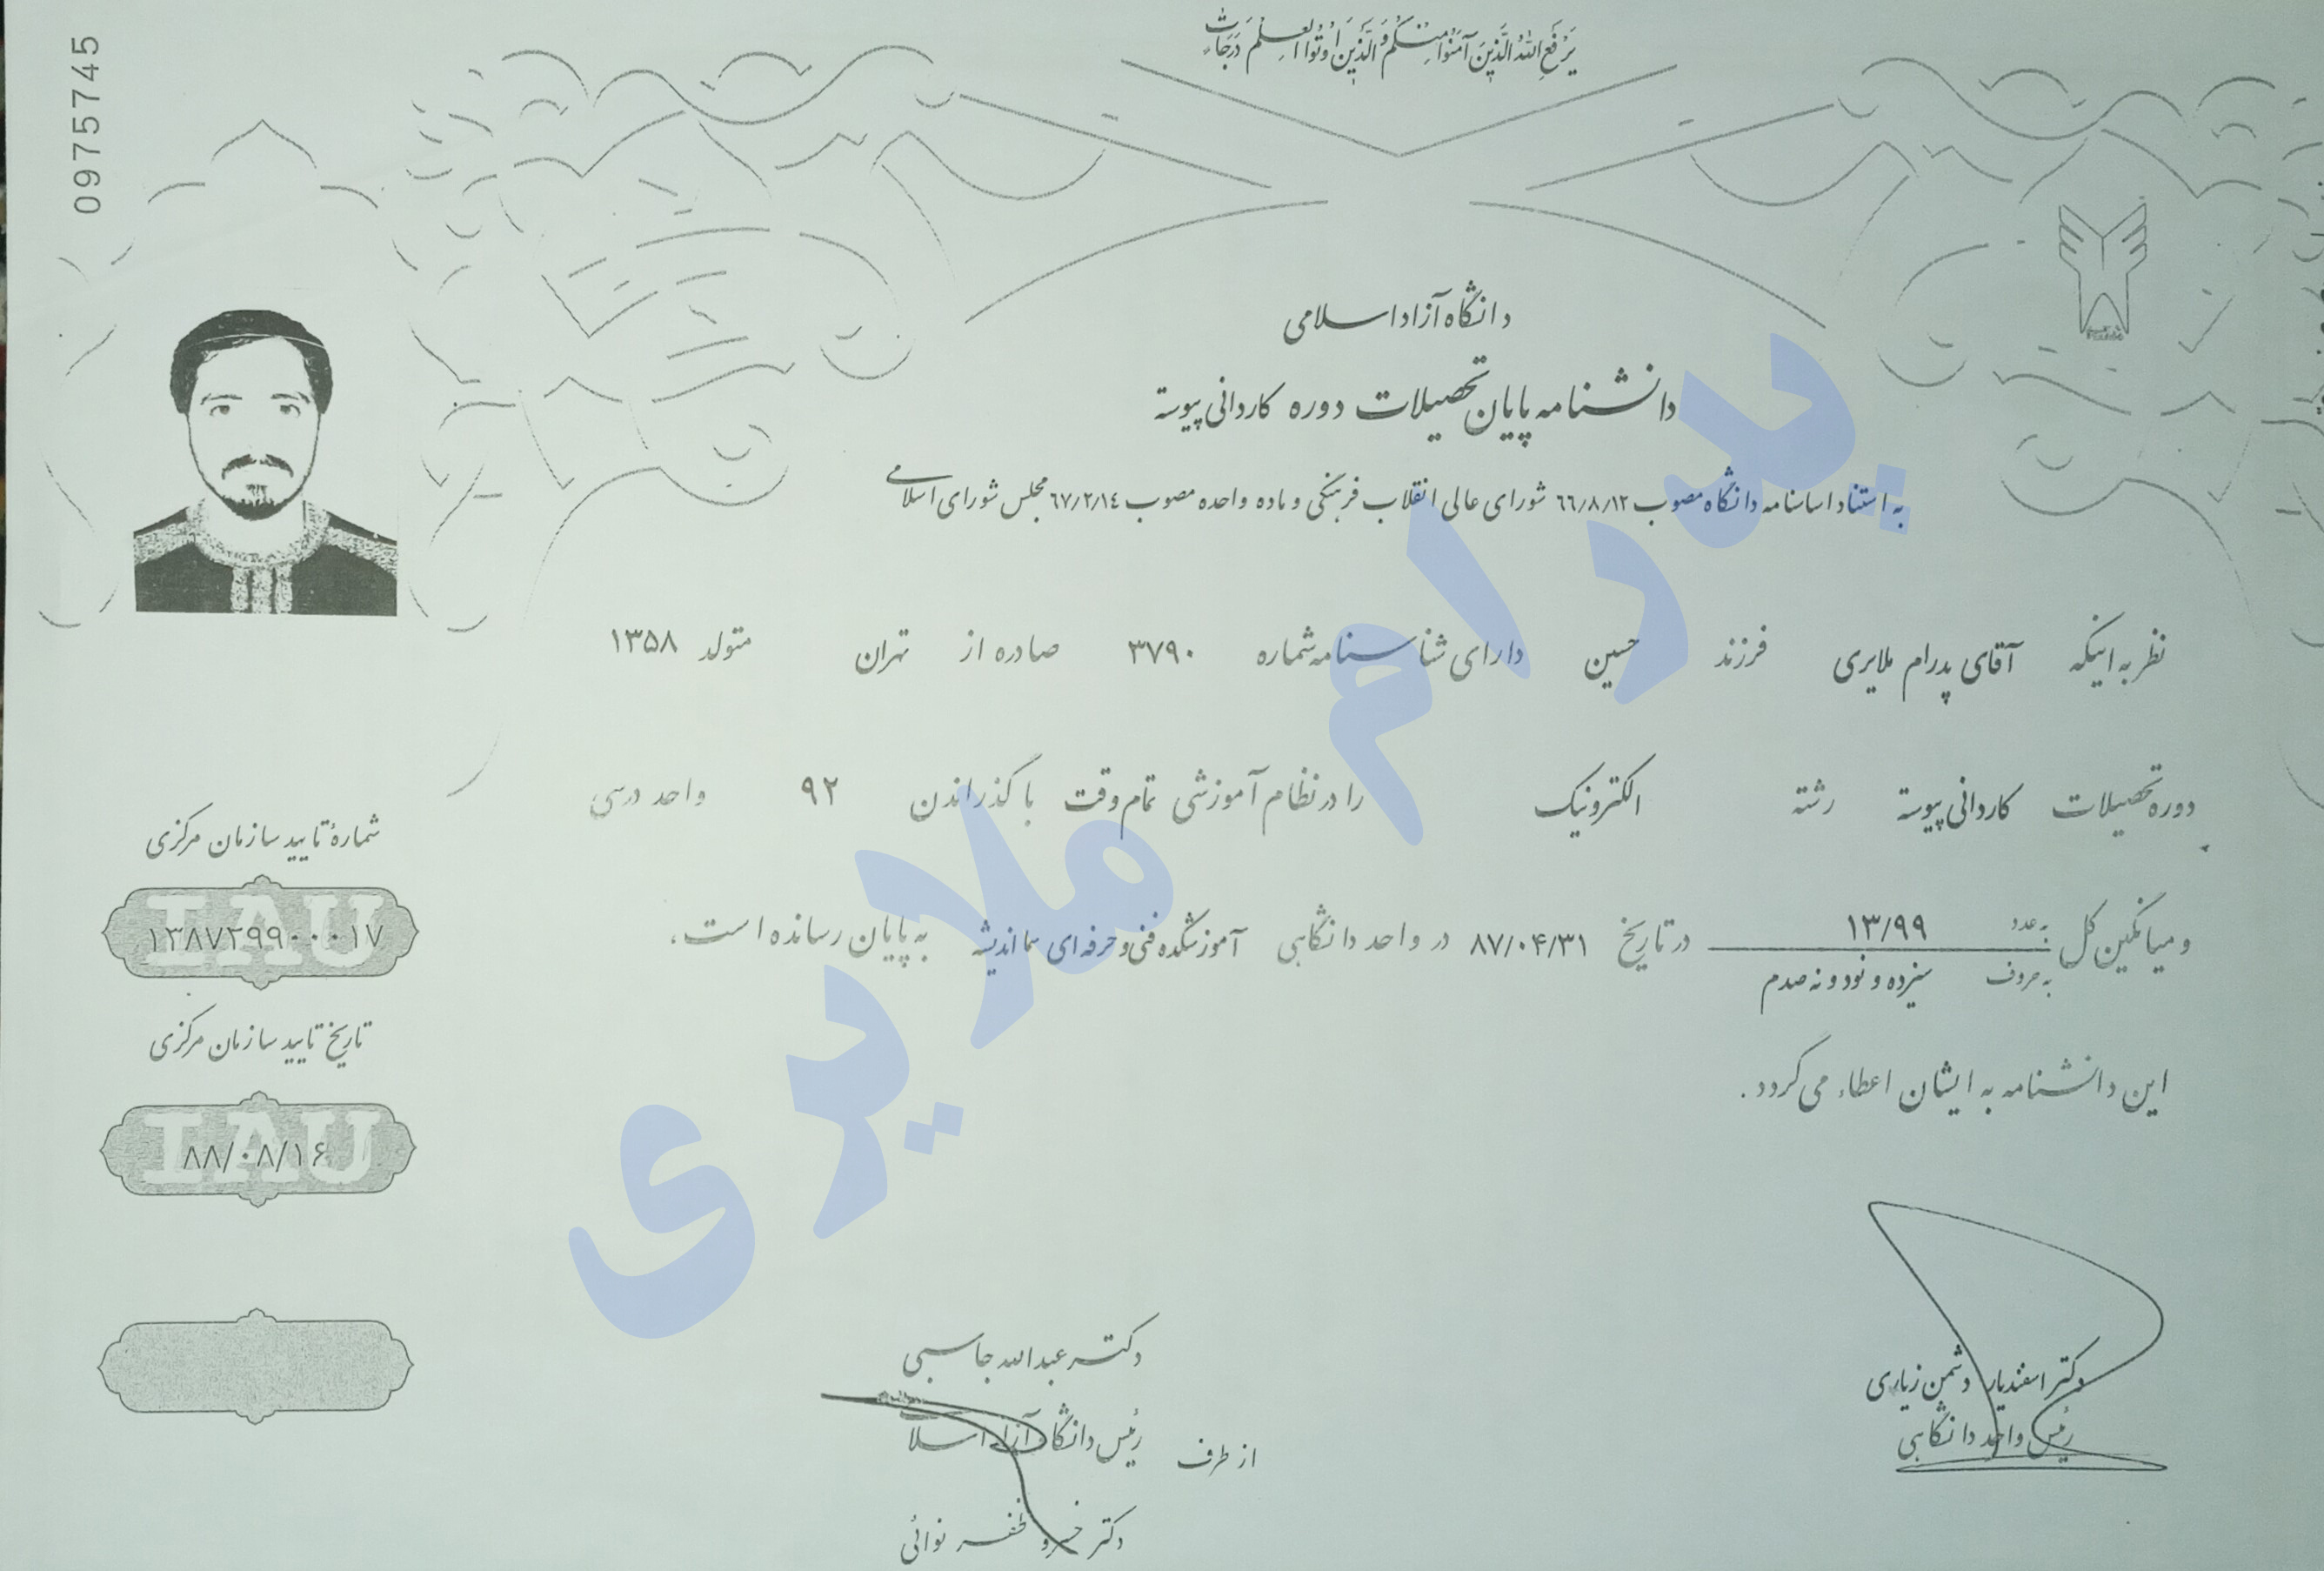 09757745
یَرْفَعِ اللهُ الَّذِینَ آمَنُوا مِنْکُمْ وَ الَّذِینَ اُوتُوا العِلمَ دَرَجَاتٍ
دانشگاه آزاد اسلامی
دانشنامه پایان تحصیلات دوره کاردانی پیوسته
به استناد اساسنامه دانشگاه مصوب ٦٦/٨/١٢ شورای عالی انقلاب فرهنگی و ماده واحده مصوب ٦٧/٢/١٤ مجلس شورای اسلامی
نظر به اینکه آقای پدرام ملایری فرزند حسین دارای شناسنامه شماره ۳۷۹۰ صادره از تهران متولد ۱۳۵۸
دوره تحصیلات کاردانی پیوسته رشته الکترونیک را در نظام آموزشی تمام وقت با گذراندن ۹۲ واحد درسی
و میانگین کل به عدد ۱۳/۹۹ به حروف سیزده و نود و نه صدم در تاریخ ۸۷/۰۴/۳۱ در واحد دانشگاهی آموزشکده فنی و حرفه ای سما اندیشه به پایان رسانده است،
این دانشنامه به ایشان اعطاء می گردد.
شماره تایید سازمان مرکزی
IAU
۱۳۸۷۲۹۹۰۰۰۱۷
تاریخ تایید سازمان مرکزی
IAU
۸۸/۰۸/۱۶
دکتر اسفندیار دشمن زیاری
رئیس واحد دانشگاهی
دکتر عبدالله جاسبی
رئیس دانشگاه آزاد اسلامی
از طرف
دکتر خسرو ظفر نوائی
پدرام ملایری